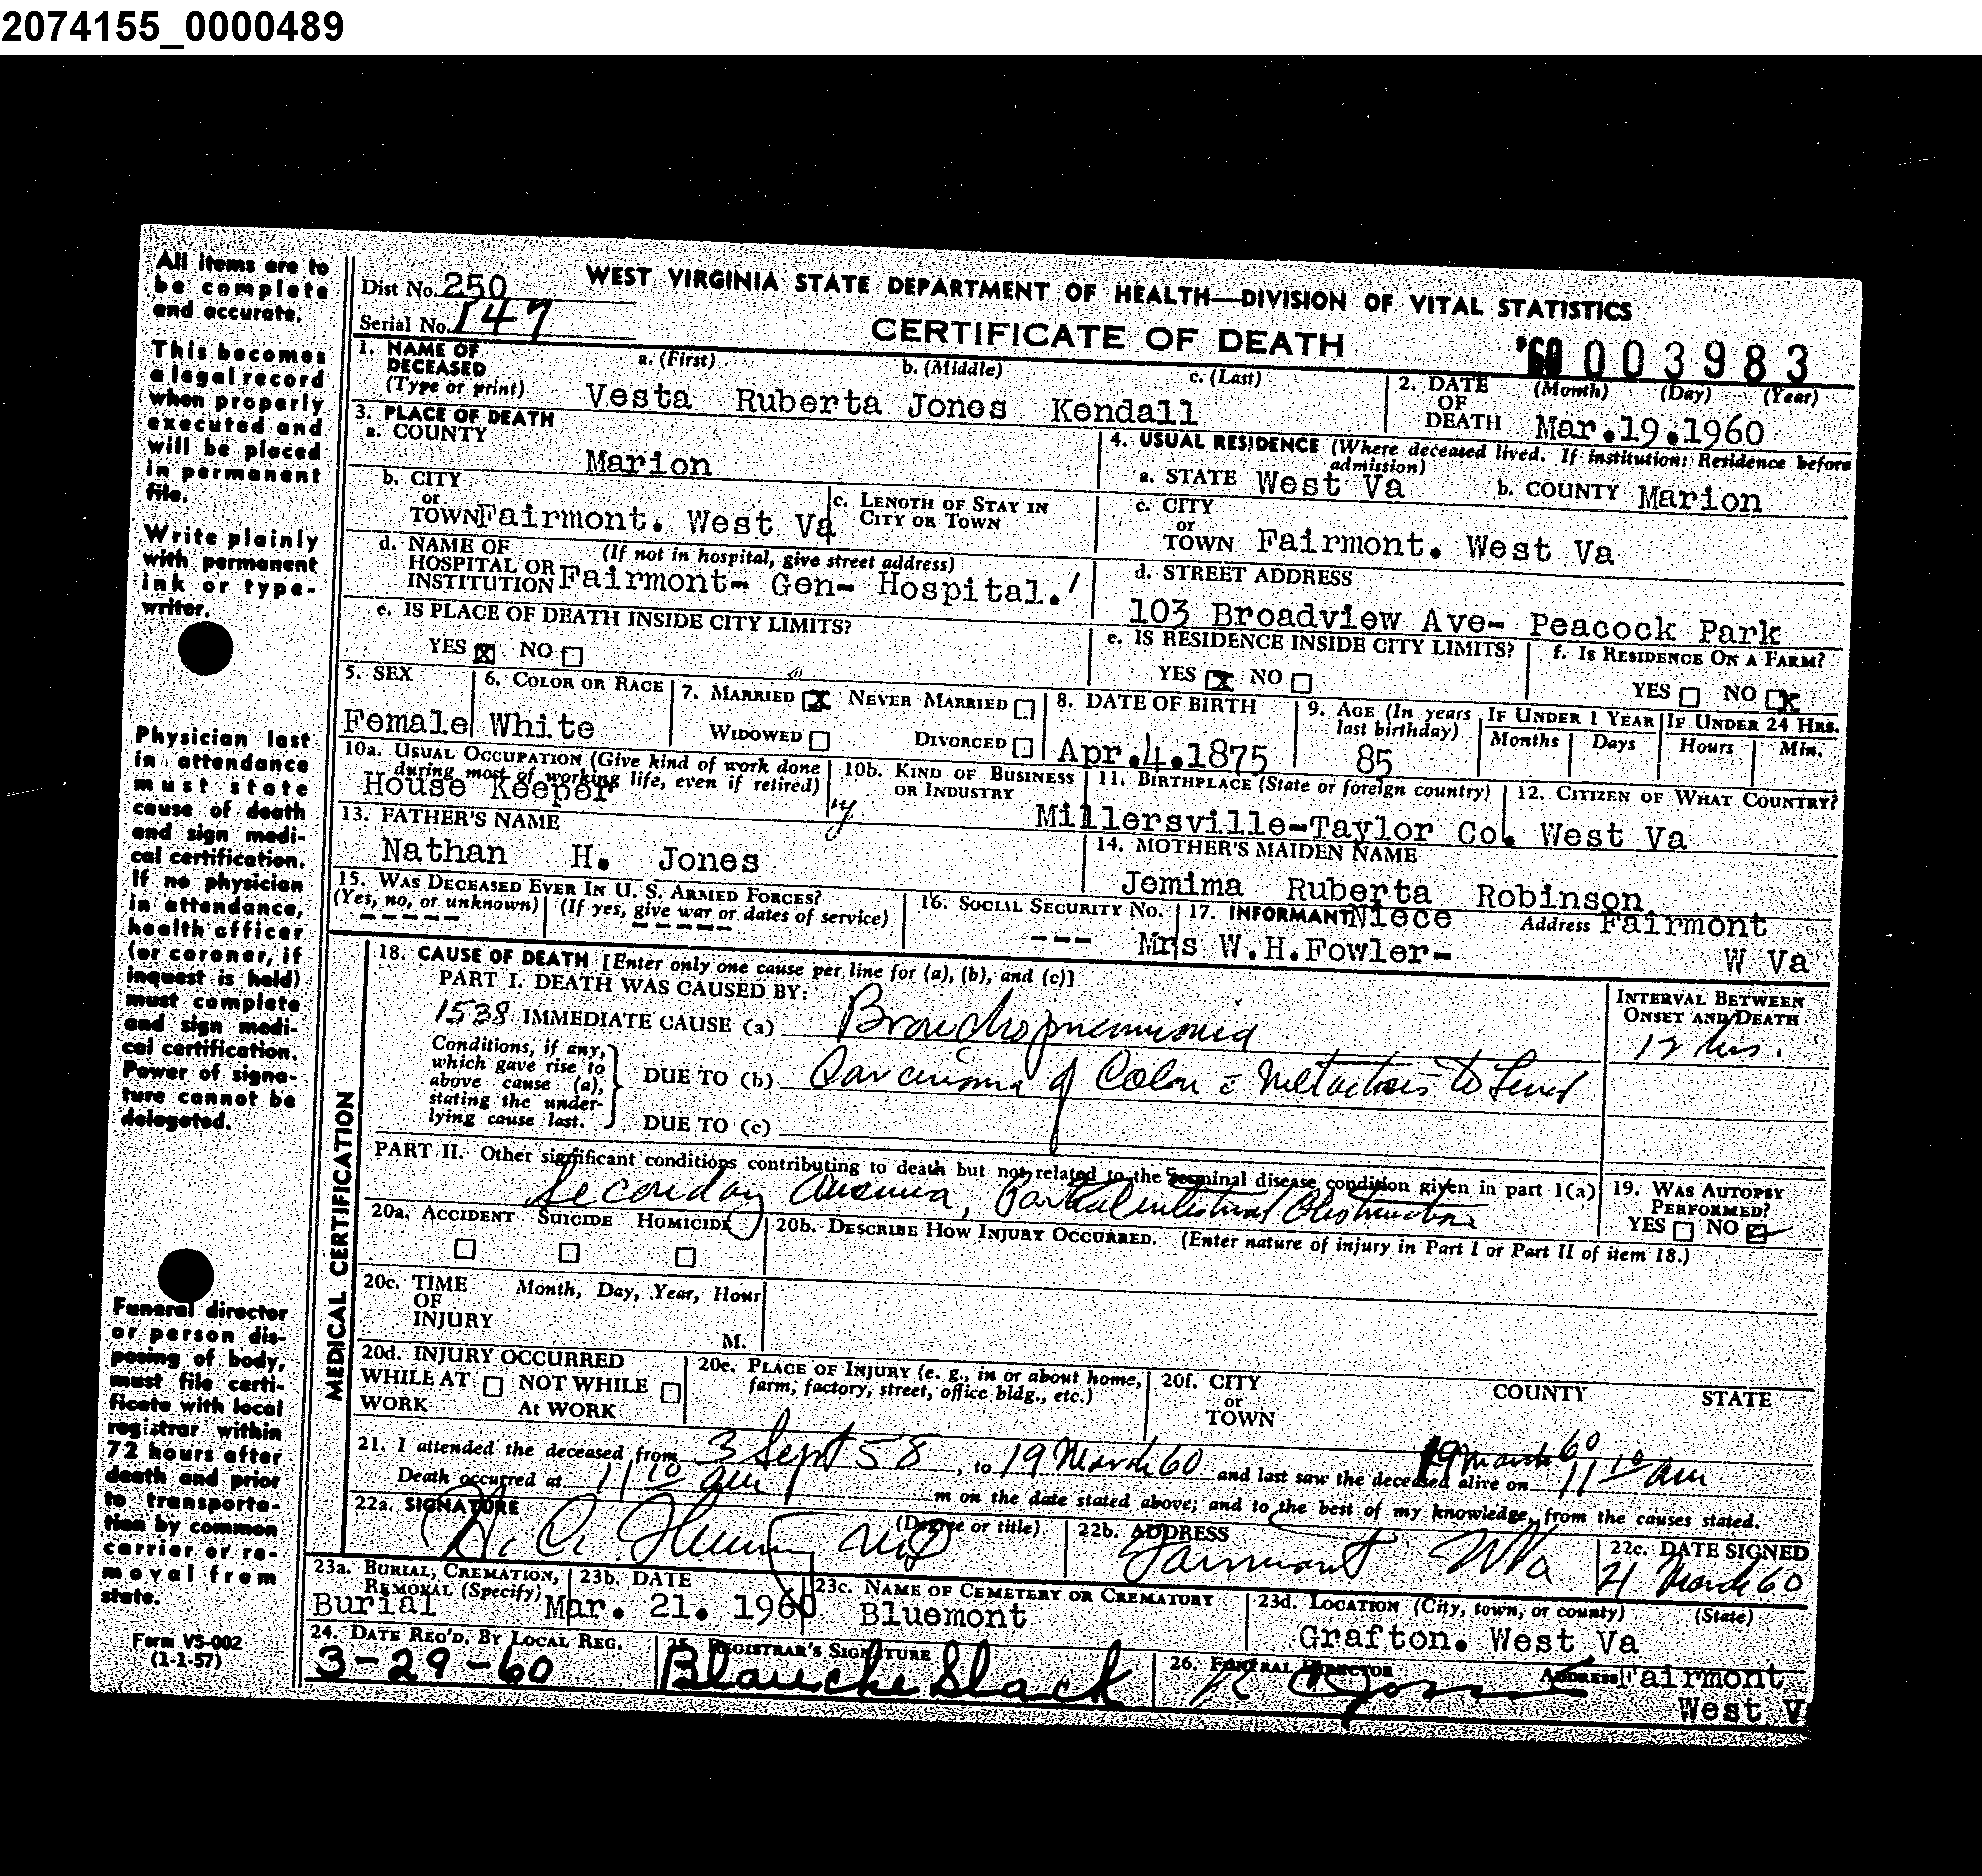 2074155_0000489
All items are to
be complete
and accurate.
This becomes
a legal record
when properly
executed and
will be placed
in permanent
file.
Write plainly
with permanent
ink or type-
writer.
Physician last
in attendance
must state
cause of death
and sign medi-
cal certification.
If no physician
in attendance,
health officer
(or coroner, if
inquest is held)
must complete
and sign medi-
cal certification.
Power of signa-
ture cannot be
delegated.
Funeral director
or person dis-
posing of body,
must file certi-
ficate with local
registrar within
72 hours after
death and prior
to transporta-
tion by common
carrier or re-
moval from
state.
Form VS-002
(1-1-57)
Dist No. 250 WEST VIRGINIA STATE DEPARTMENT OF HEALTH—DIVISION OF VITAL STATISTICS
Serial No. 147 CERTIFICATE OF DEATH '60 003983
1. NAME OF DECEASED (Type or print) a. (First) b. (Middle) c. (Last)
Vesta Ruberta Jones Kendall
2. DATE OF DEATH (Month) (Day) (Year)
Mar.19.1960
3. PLACE OF DEATH
a. COUNTY
Marion
4. USUAL RESIDENCE (Where deceased lived. If institution: Residence before admission)
a. STATE West Va b. COUNTY Marion
b. CITY or TOWN Fairmont. West Va
c. LENGTH OF STAY IN CITY OR TOWN
c. CITY or TOWN Fairmont. West Va
d. NAME OF HOSPITAL OR INSTITUTION (If not in hospital, give street address)
Fairmont- Gen- Hospital.
d. STREET ADDRESS
103 Broadview Ave- Peacock Park
e. IS PLACE OF DEATH INSIDE CITY LIMITS?
YES X NO
e. IS RESIDENCE INSIDE CITY LIMITS?
YES X NO
f. IS RESIDENCE ON A FARM?
YES NO X
5. SEX
Female
6. COLOR OR RACE
White
7. MARRIED X NEVER MARRIED
WIDOWED DIVORCED
8. DATE OF BIRTH
Apr.4.1875
9. AGE (In years last birthday)
85
IF UNDER 1 YEAR IF UNDER 24 HRS.
Months Days Hours Min.
10a. USUAL OCCUPATION (Give kind of work done during most of working life, even if retired)
House Keeper
10b. KIND OF BUSINESS OR INDUSTRY
11. BIRTHPLACE (State or foreign country) 12. CITIZEN OF WHAT COUNTRY?
Millersville-Taylor Co. West Va
13. FATHER'S NAME
Nathan H. Jones
14. MOTHER'S MAIDEN NAME
Jemima Ruberta Robinson
15. WAS DECEASED EVER IN U. S. ARMED FORCES?
(Yes, no, or unknown) (If yes, give war or dates of service)
----- -----
16. SOCIAL SECURITY NO.
---
17. INFORMANT Niece Address Fairmont
Mrs W.H.Fowler- W Va
MEDICAL CERTIFICATION
18. CAUSE OF DEATH [Enter only one cause per line for (a), (b), and (c)]
PART I. DEATH WAS CAUSED BY:
INTERVAL BETWEEN ONSET AND DEATH
1538 IMMEDIATE CAUSE (a) Bronchopneumonia 12 hrs.
Conditions, if any, which gave rise to above cause (a), stating the underlying cause last.
DUE TO (b) Carcinoma of Colon c Metastasis to Liver
DUE TO (c)
PART II. Other significant conditions contributing to death but not related to the terminal disease condition given in part I(a)
Secondary Anemia, Partial intestinal Obstruction
19. WAS AUTOPSY PERFORMED?
YES NO
20a. ACCIDENT SUICIDE HOMICIDE
20b. DESCRIBE HOW INJURY OCCURRED. (Enter nature of injury in Part I or Part II of item 18.)
20c. TIME OF INJURY Month, Day, Year, Hour
M.
20d. INJURY OCCURRED
WHILE AT WORK NOT WHILE AT WORK
20e. PLACE OF INJURY (e. g., in or about home, farm, factory, street, office bldg., etc.)
20f. CITY or TOWN COUNTY STATE
21. I attended the deceased from 3 Sept 58, to 19 March 60 and last saw the deceased alive on 19 March 60 11 10 am
Death occurred at 11 10 am m on the date stated above; and to the best of my knowledge, from the causes stated.
22a. SIGNATURE (Degree or title)
MD
22b. ADDRESS
Fairmont WVa
22c. DATE SIGNED
21 March 60
23a. BURIAL, CREMATION, REMOVAL (Specify)
Burial
23b. DATE
Mar. 21. 1960
23c. NAME OF CEMETERY OR CREMATORY
Bluemont
23d. LOCATION (City, town, or county) (State)
Grafton. West Va
24. DATE REC'D. BY LOCAL REG.
3-29-60
25. REGISTRAR'S SIGNATURE
Blanche Slack
26. FUNERAL DIRECTOR ADDRESS
R C Jones Fairmont
West V